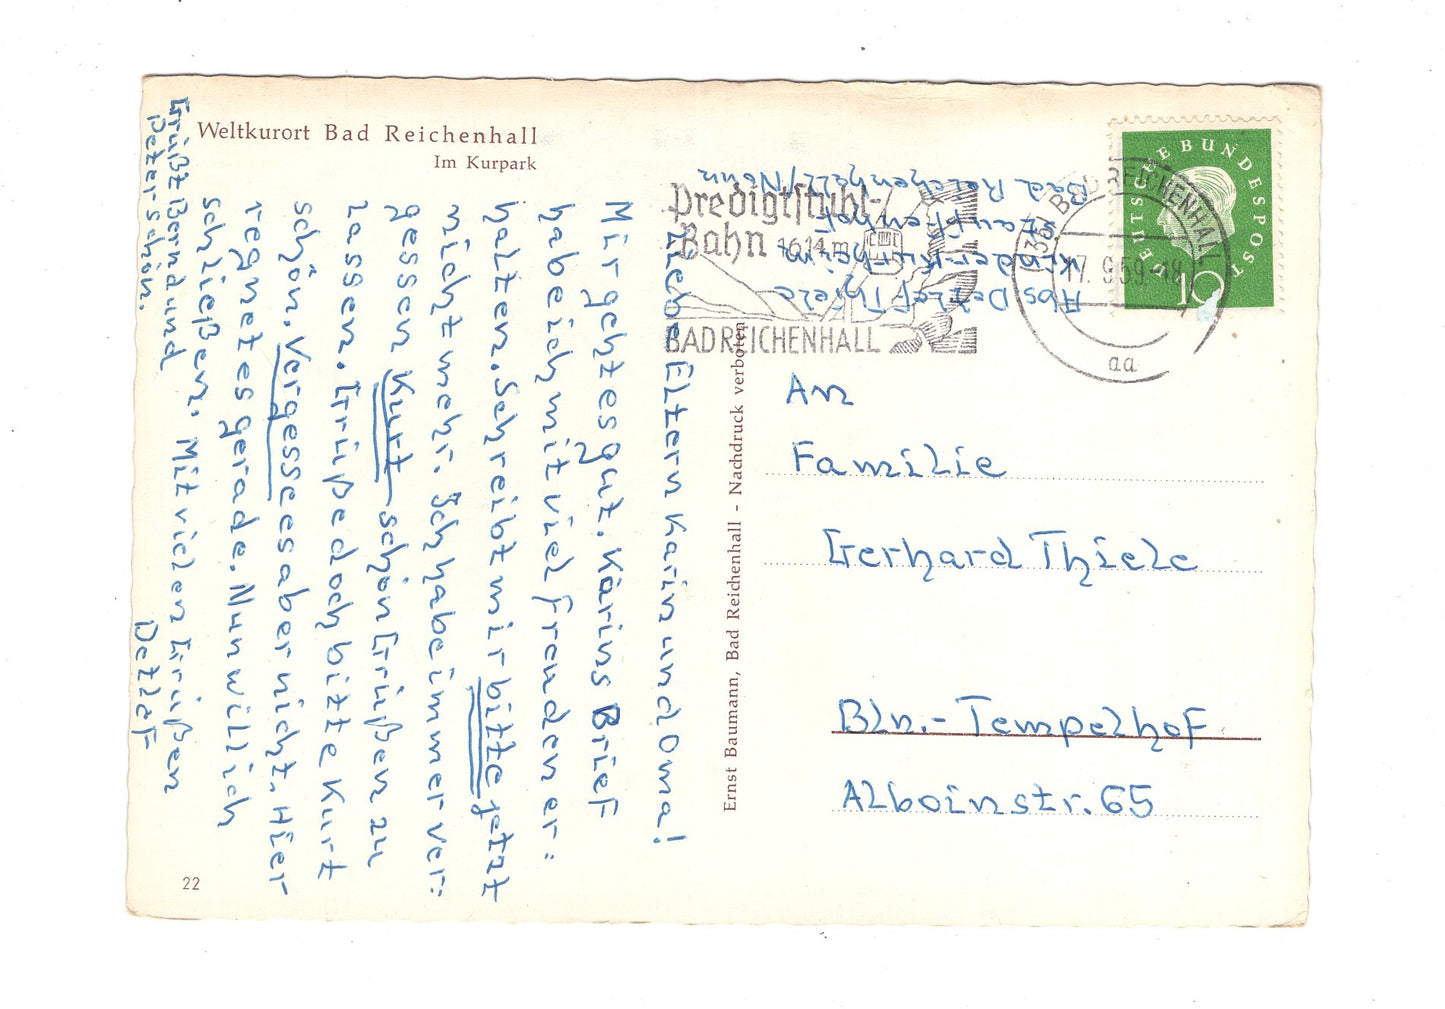 Weltkurort Bad Reichenhall
Im Kurpark
Liebe Eltern Karin und Oma!
Mir geht es gut. Karins Brief
habe ich mit viel Freuden er:
halten. Schreibt mir bitte jetzt
nicht mehr. Ich habe immer ver:
gessen Kurt schön Grüßen zu
lassen. Grüße doch bitte Kurt
schön. Vergesse es aber nicht. Hier
regnet es gerade. Nun will ich
schließen. Mit vielen Grüßen
Detlef
Grüßt Bernd und
Peter schön.
22
Ernst Baumann, Bad Reichenhall - Nachdruck verboten
Abs. Detlef Thiele
Kinder-Kurheim
Bad Reichenhall/Nonn
Predigtstuhl-
Bahn 1614 m
BAD REICHENHALL
BAD REICHENHALL
17. 9. 59.-18
aa
DEUTSCHE BUNDESPOST
10
An
Familie
Gerhard Thiele
Bln.-Tempelhof
Alboinstr. 65